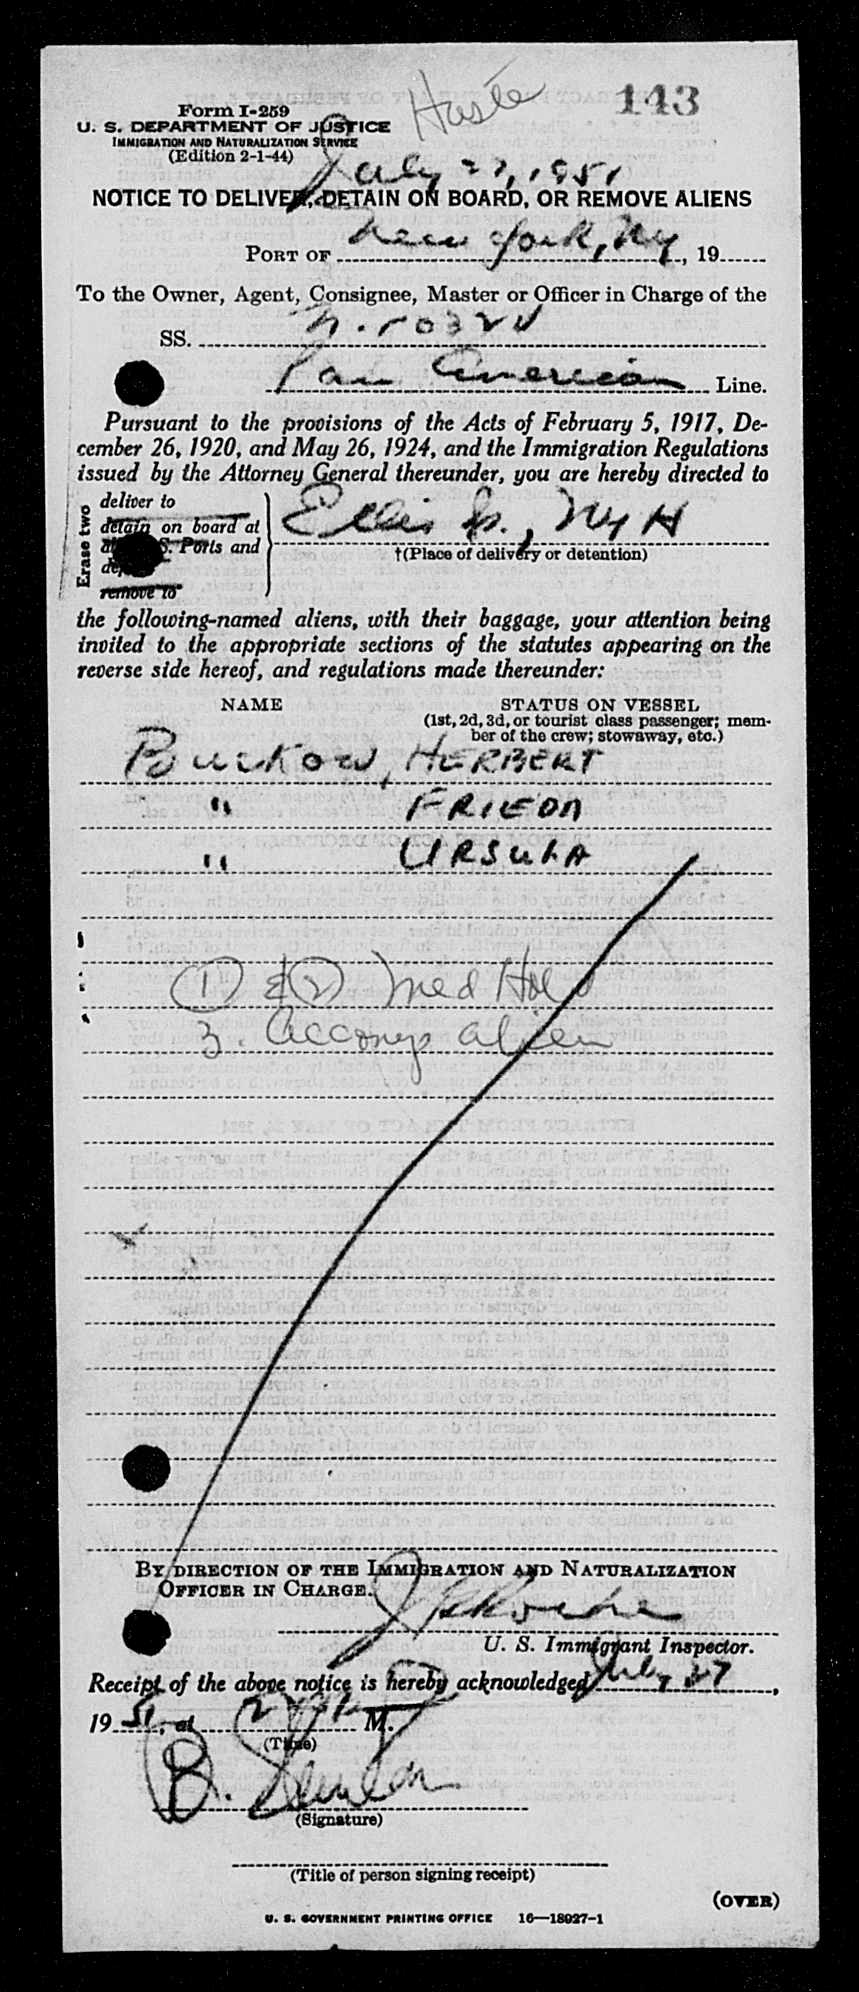 143
Form I-259
U. S. DEPARTMENT OF JUSTICE
IMMIGRATION AND NATURALIZATION SERVICE
(Edition 2-1-44)
July 27, 1951
NOTICE TO DELIVER, DETAIN ON BOARD, OR REMOVE ALIENS
PORT OF New York, Ny, 19
To the Owner, Agent, Consignee, Master or Officer in Charge of the
SS.
Pan American Line.
Pursuant to the provisions of the Acts of February 5, 1917, De-
cember 26, 1920, and May 26, 1924, and the Immigration Regulations
issued by the Attorney General thereunder, you are hereby directed to
Erase two
deliver to
detain on board at
S. Ports and
remove to
Ellis Is., Ny H
†(Place of delivery or detention)
the following-named aliens, with their baggage, your attention being
invited to the appropriate sections of the statutes appearing on the
reverse side hereof, and regulations made thereunder:
NAME STATUS ON VESSEL
(1st, 2d, 3d, or tourist class passenger; mem-
ber of the crew; stowaway, etc.)
Buckow, HERBERT
" FRIEDA
" URSULA
1 & 2 Med Hold
3. Accomp alien
BY DIRECTION OF THE IMMIGRATION AND NATURALIZATION
OFFICER IN CHARGE.
U. S. Immigrant Inspector.
Receipt of the above notice is hereby acknowledged July 27,
19 51, at M.
(Time)
B.
(Signature)
(Title of person signing receipt)
(OVER)
U. S. GOVERNMENT PRINTING OFFICE 16—18927-1